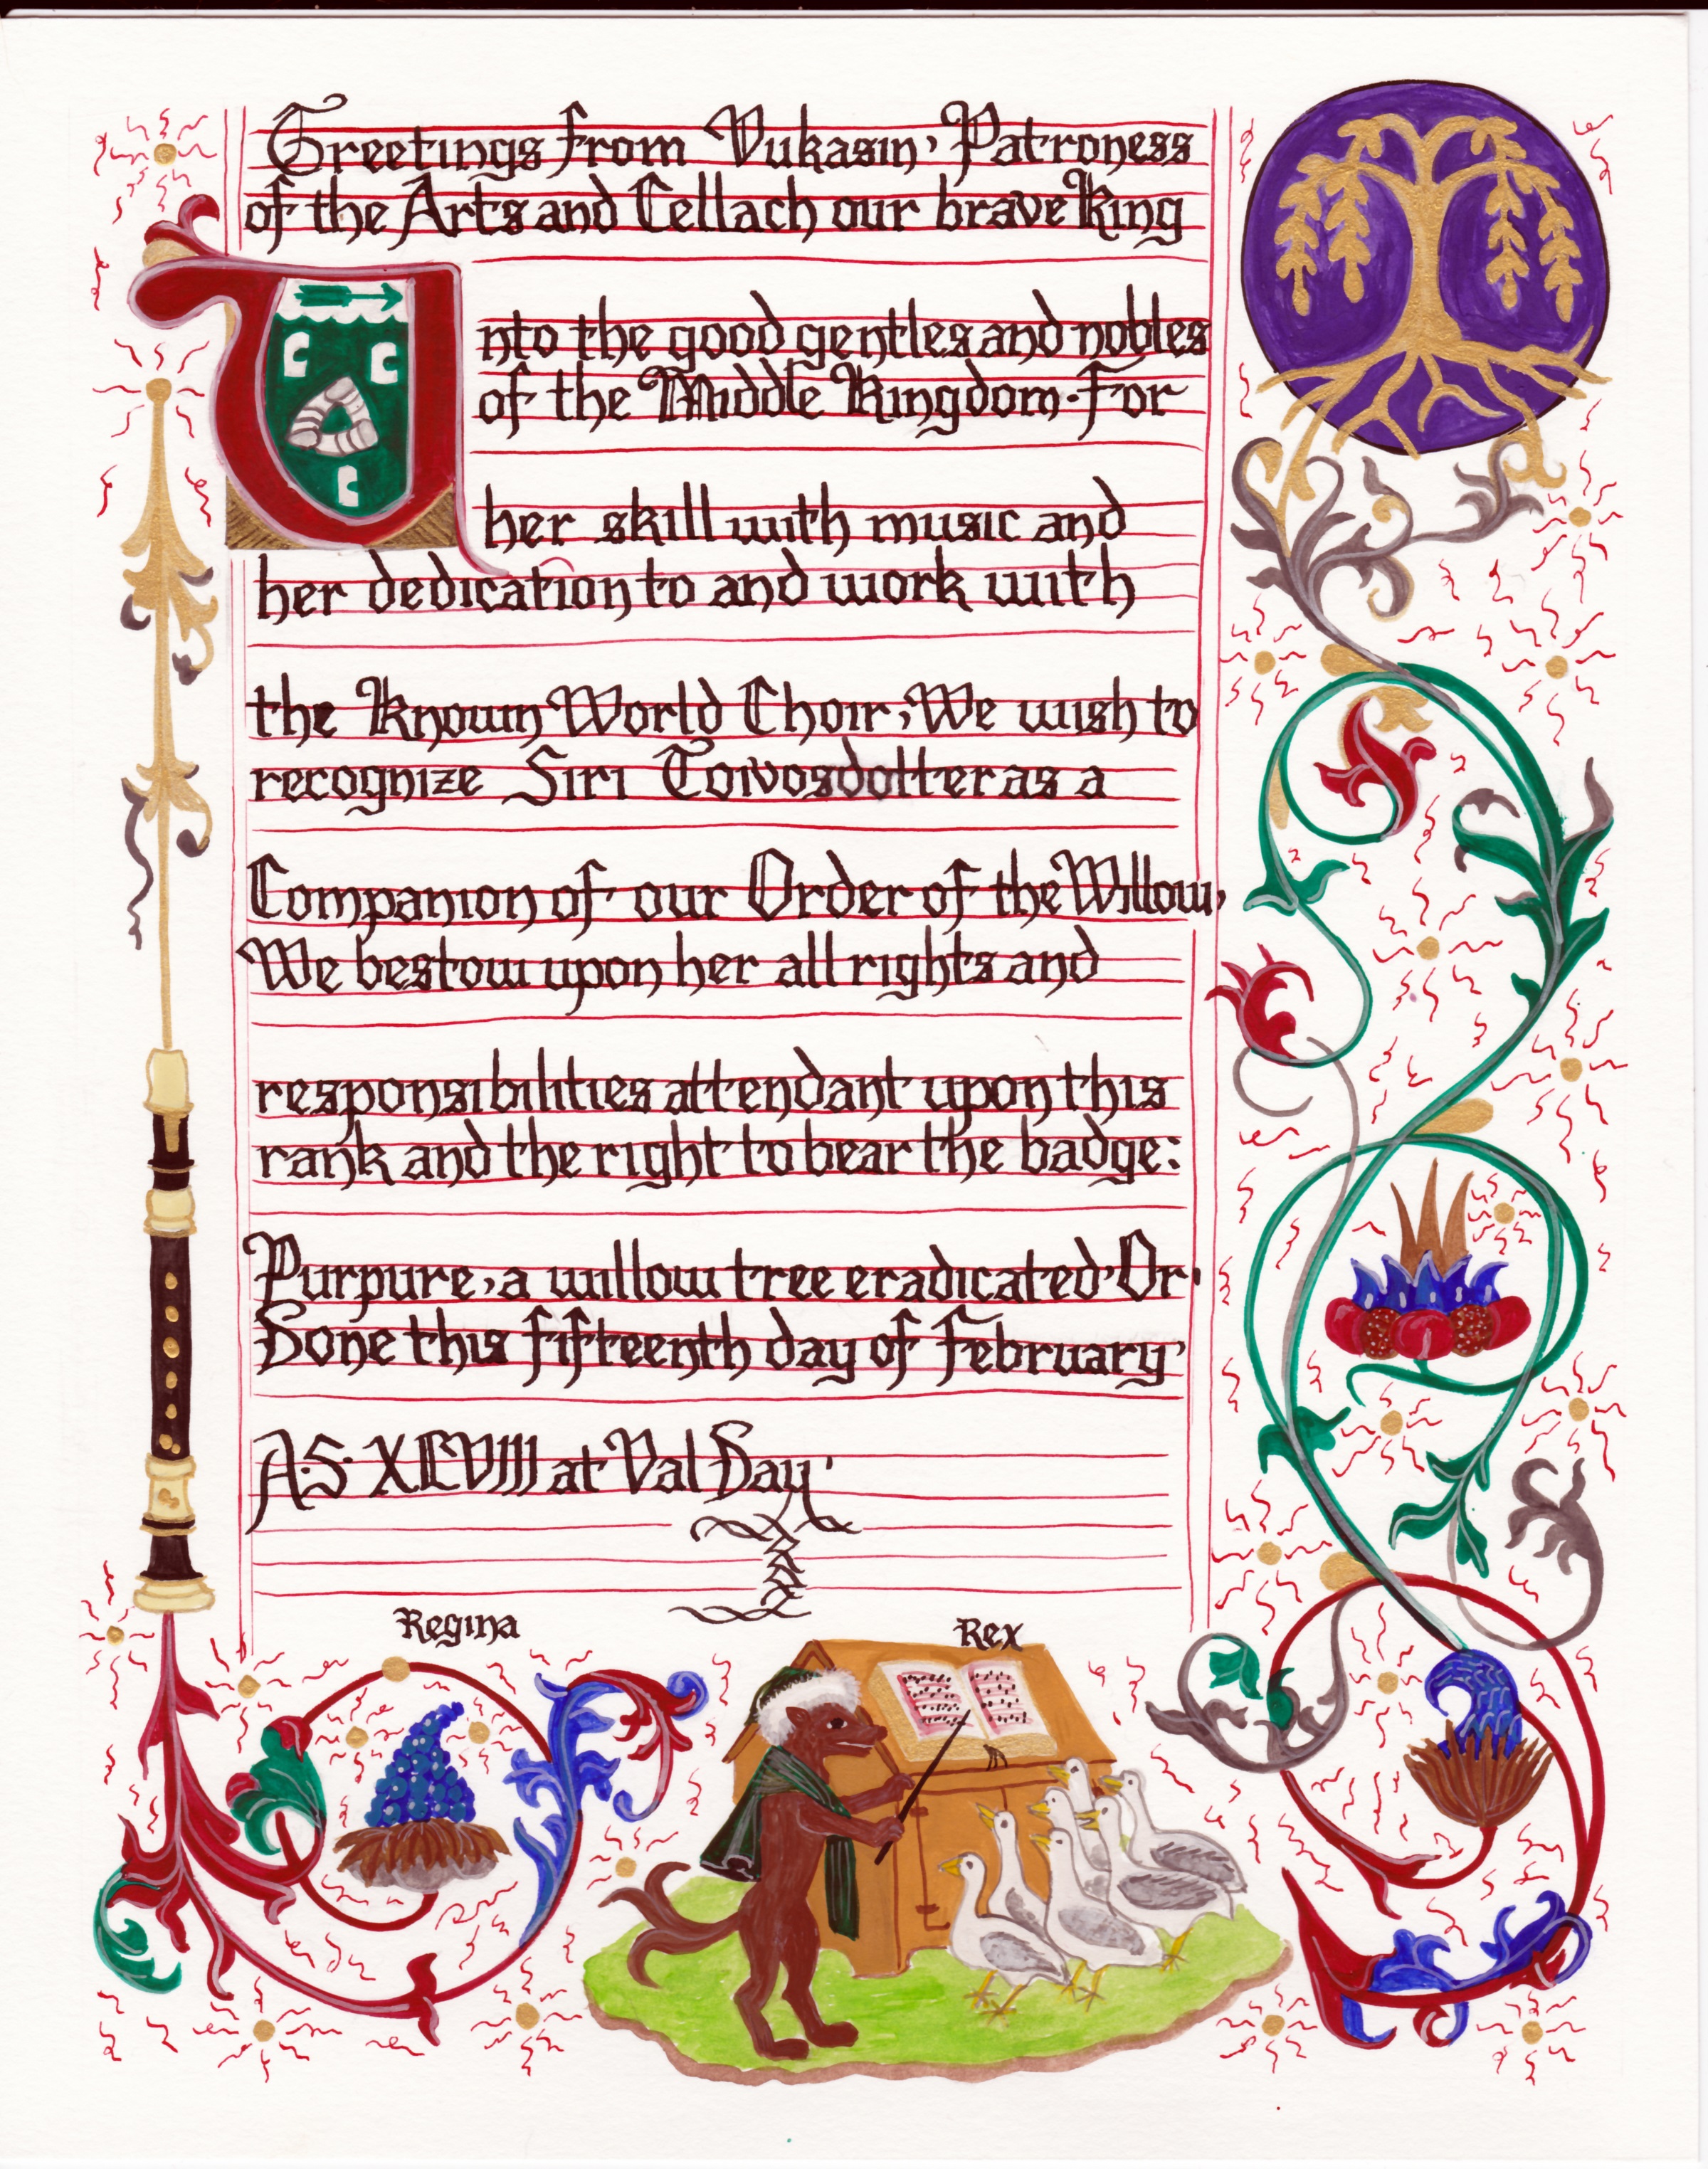 Greetings from Vukasin, Patroness
of the Arts and Cellach our brave King
Unto the good gentles and nobles
of the Middle Kingdom. For
her skill with music and
her dedication to and work with
the Known World Choir, We wish to
recognize Siri Toivosdotter as a
Companion of our Order of the Willow,
We bestow upon her all rights and
responsibilities attendant upon this
rank and the right to bear the badge:
Purpure, a willow tree eradicated Or.
Done this fifteenth day of February
A.S. XLVIII at Val Day.
Regina
Rex